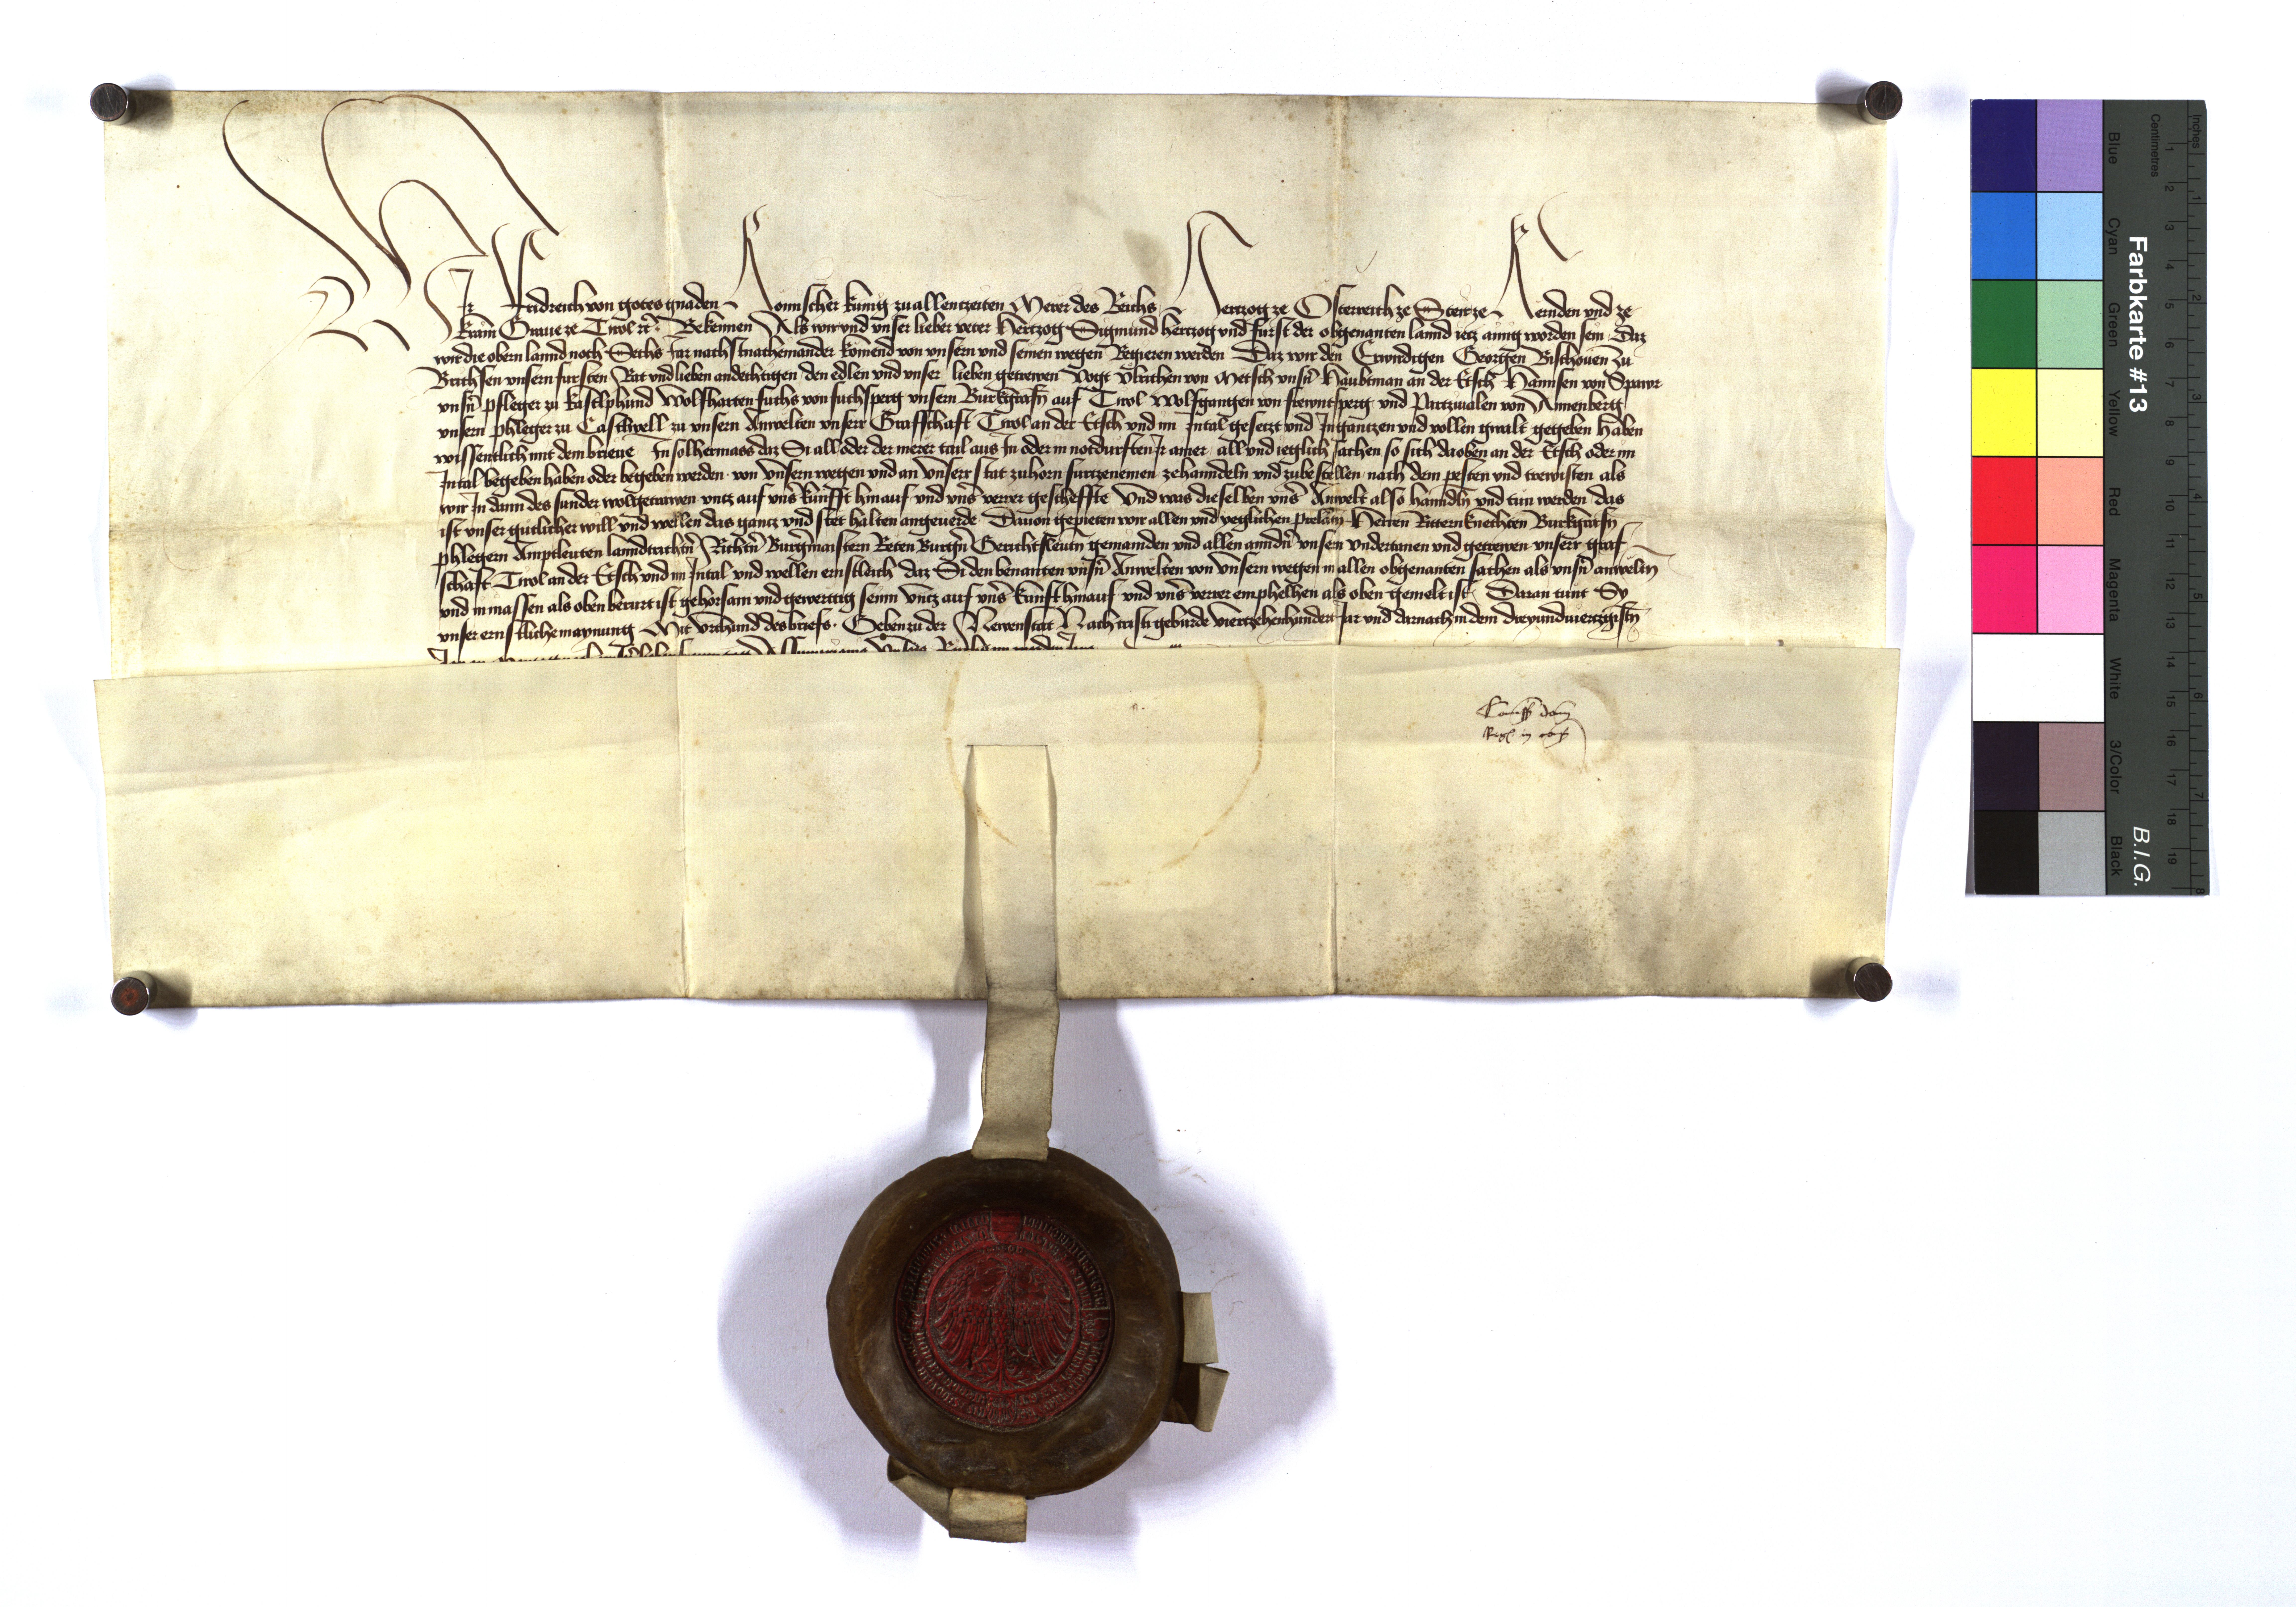 Wir Fridreich von gotes gnaden Romischer kunig zu allenczeiten Merer des Reichs Hertzog ze Osterreich ze Steir ze Kernden und ze
Krain Graue ze Tirol etc. Bekennen Als wir und unser lieber veter Hertzog Sigmund hertzog und furst der obgenanten lannd ietz ainig worden sein Daz
wir die obern lannd noch Sechs Jar nachstnacheinander komend von unsern und seinen wegen Regieren werden Daz wir den Erwirdigen Georgen Bischouen zu
Brichsen unsern fursten Rat und lieben andechtigen den edlen und unser lieben getrewen Vogt Ulrichen von Metsch unsn Haubtman an der Etsch Hannsen von Spawr
unsn pfleger zu kastlphund Wolfharten fuchs von fuchsperg unsern Burkgrafn auf Tirol Wolfgangen von frewntsperg und Partzivalen von Annenberg
unsern phleger zu Castlwell zu unsern Anwelten unserr Grafschaft Tirol an der Etsch und im Intal gesetzt und In gantzen und vollen gwalt gegeben haben
wissentlich mit dem brieue In solhermass daz Si all oder der merer tail aus In oder in notdurften Ir ainer all und ieglich sachen so sich daoben an der Etsch oder im
Intal begeben haben oder begeben werden von unsern wegen und an unserr stat zuhorn furtzenemen zehanndeln und zubestellen nach dem pesten und trewisten als
wir In dann des sunder wolgetrawen untz auf uns kunfft hinauf und uns verrer gescheffte Und was dieselben uns Anwelt also hanndln und tun werden das
ist unser gutlicher will und wellen das gantz und stet halten angeuerde Dauon gepieten wir allen und yeglichen prelatn Herren Rittern knechten Burkgrafn
phlegern Amptleuten lanndrichtn Richtn Burgmaistern Reten Burgn Gerichtsleutn gemainden und allen anndn unsern undertanen und getrewen unserr graf
schaft Tirol an der Etsch und im Intal und wellen ernstleich daz Si den benanten unsn Anwelten von unsern wegen in allen obgenanten sachen als unsn anweltn
und in massen als oben berurt ist gehorsam und gewerttig seinn untz auf uns kunft hinauf und uns verrer emphelhen als oben gemelt ist Daran tunt Sy
unser ernstliche maynung Mit urchund des briefs. Geben zu der Newenstat Nach cristi geburde viertzehenhundert Jar und darnach in dem dreyundviertzigistn
Comiss domi
Regis in cons
Farbkarte #13
B.I.G.
Inches
Centimetres
Blue
Cyan
Green
Yellow
Red
Magenta
White
3/Color
Black
1 2 3 4 5 6 7 8 9 10 11 12 13 14 15 16 17 18 19
1 2 3 4 5 6 7 8